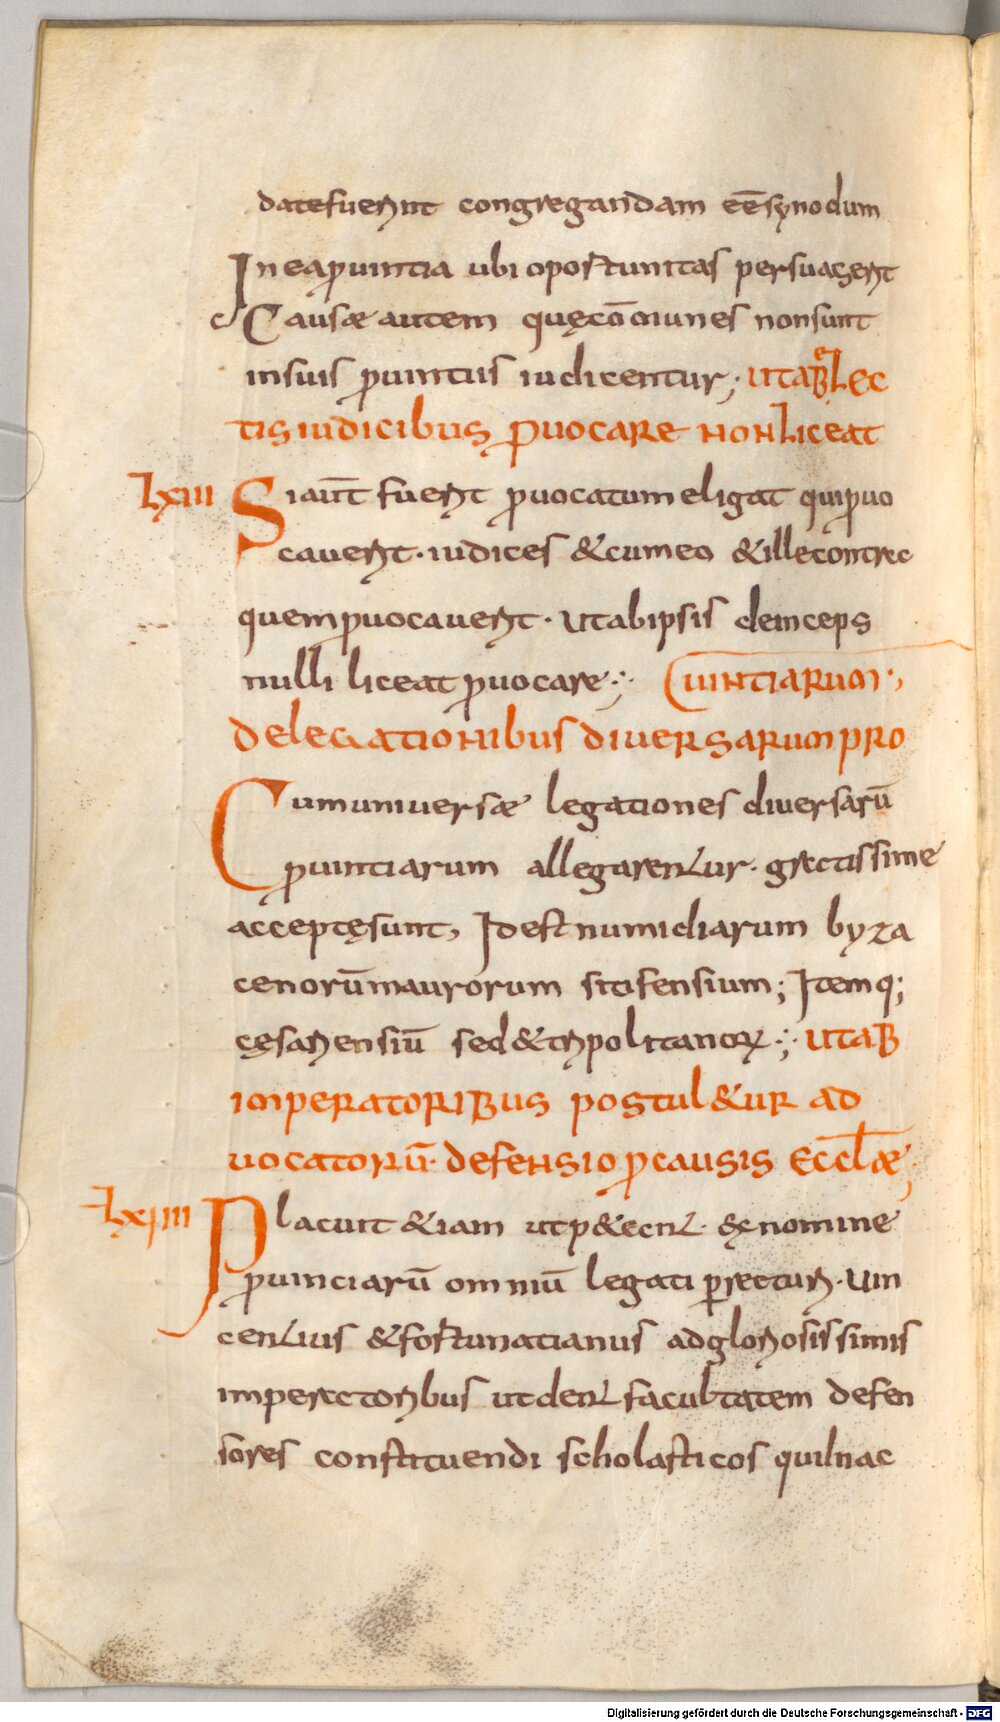 datefuerint congregandam eē synodum
In ea ꝓuintia ubi oportunitas persuaserit
c Causae autem quę cōmunes non sunt
in suis ꝓuintiis iudicentur; ut ab elec
tis iudicibus ꝓuocare non liceat
Lxiii Si aut̄ fuerit ꝓuocatum eligat qui ꝓuo
cauerit · iudices & cum eo & ille contra
quem ꝓuocauerit · ut ab ipsis deinceps
nulli liceat ꝓuocare ; uintiarum ·,
De legationibus diuersarum pro
Cum uniuersae legationes diuersarū
ꝓuintiarum allegarentur · gratissime
acceptę sunt, Id est numidiarum byza
cenorū maurorum sitifensium; Itemq;
cęsariensiū sed & tripolitanorꝝ ; ut ab
imperatoribus postul&ur ad
uocatorū · defensio ꝓ causis eccl̄ae
Lxiiii Placuit &iam ut p&ent · ex nomine
ꝓuinciarū omniū legati ꝑrecturi · uin
centius & fortunatianus ad gloriosissimis
imperatoribus ut dent facultatem defen
sores constituendi scholasticos qui in ac
Digitalisierung gefördert durch die Deutsche Forschungsgemeinschaft - DFG